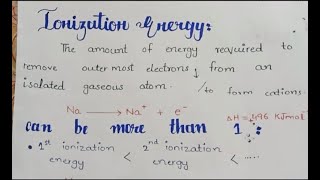 Ionization Energy:
The amount of energy required to
remove outer most electrons ↓ from an
isolated gaseous atom. /to form cations.
Na → Na⁺ + e⁻
ΔH = 496 KJmol⁻¹
can be more than 1 :
• 1st ionization energy < 2nd ionization energy < .....